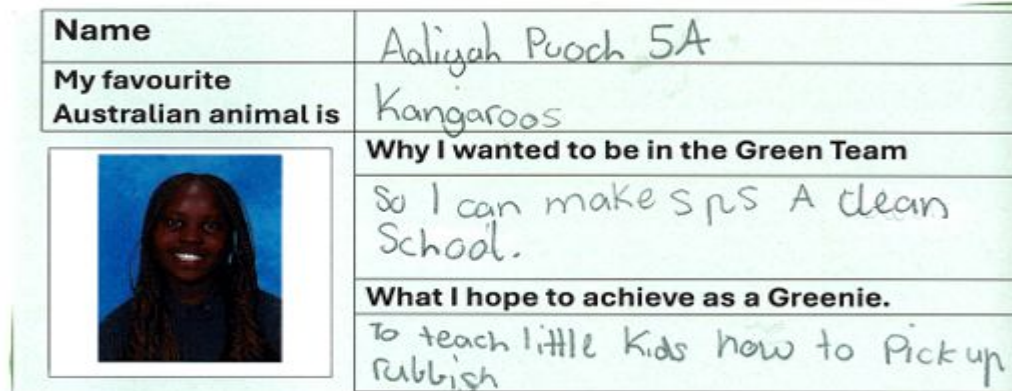 Name
Aaliyah Puoch 5A
My favourite
Australian animal is
Kangaroos
Why I wanted to be in the Green Team
So I can make sps A clean
School.
What I hope to achieve as a Greenie.
To teach little Kids how to Pick up
rubbish